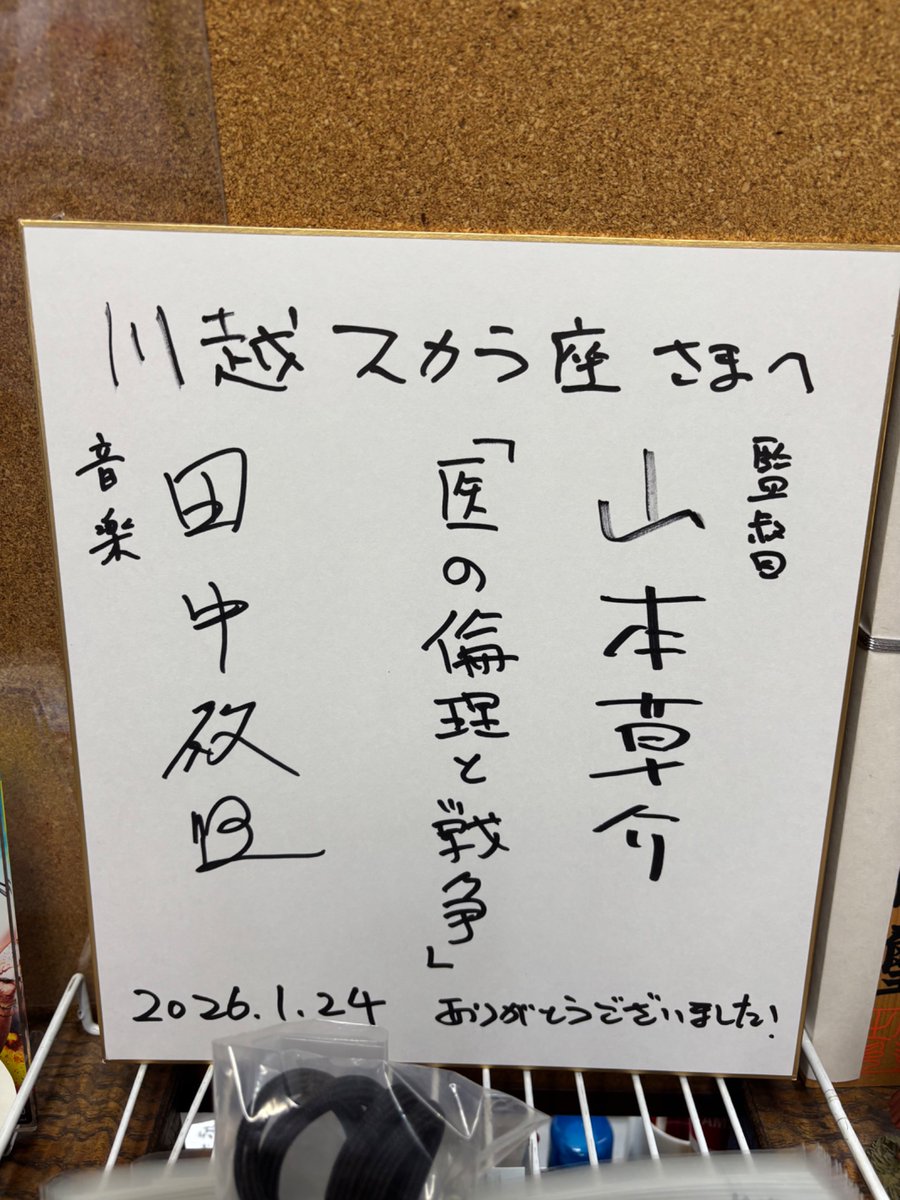 川越スカラ座さまへ
監督
山本草介
「医の倫理と戦争」
音楽
田中教順
2026.1.24
ありがとうございました!